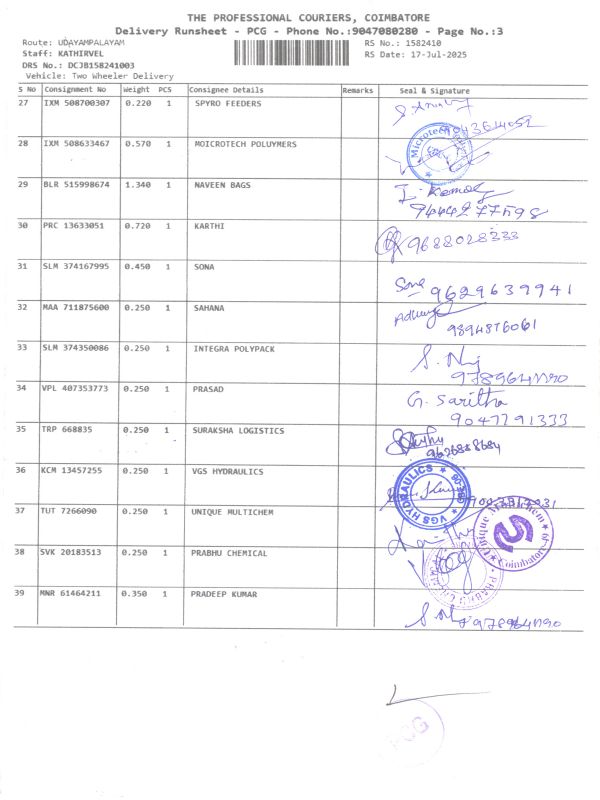 THE PROFESSIONAL COURIERS, COIMBATORE
Delivery Runsheet - PCG - Phone No.:9047080280 - Page No.:3
Route: UDAYAMPALAYAM RS No.: 1582410
Staff: KATHIRVEL RS Date: 17-Jul-2025
DRS No.: DCJB158241003
Vehicle: Two Wheeler Delivery
S No Consignment No Weight PCS Consignee Details Remarks Seal & Signature
27 IXM 508700307 0.220 1 SPYRO FEEDERS
28 IXM 508633467 0.570 1 MOICROTECH POLUYMERS Microtech
29 BLR 515998674 1.340 1 NAVEEN BAGS
9444277598
30 PRC 13633051 0.720 1 KARTHI 9688028333
31 SLM 374167995 0.450 1 SONA Sona 9629639941
32 MAA 711875600 0.250 1 SAHANA
9894876061
33 SLM 374350086 0.250 1 INTEGRA POLYPACK
34 VPL 407353773 0.250 1 PRASAD G. Saritha
9047791333
35 TRP 668835 0.250 1 SURAKSHA LOGISTICS
9626888684
36 KCM 13457255 0.250 1 VGS HYDRAULICS VGS HYDRAULICS
37 TUT 7266090 0.250 1 UNIQUE MULTICHEM Unique Multichem Coimbatore
38 SVK 20183513 0.250 1 PRABHU CHEMICAL
39 MNR 61464211 0.350 1 PRADEEP KUMAR
PCG